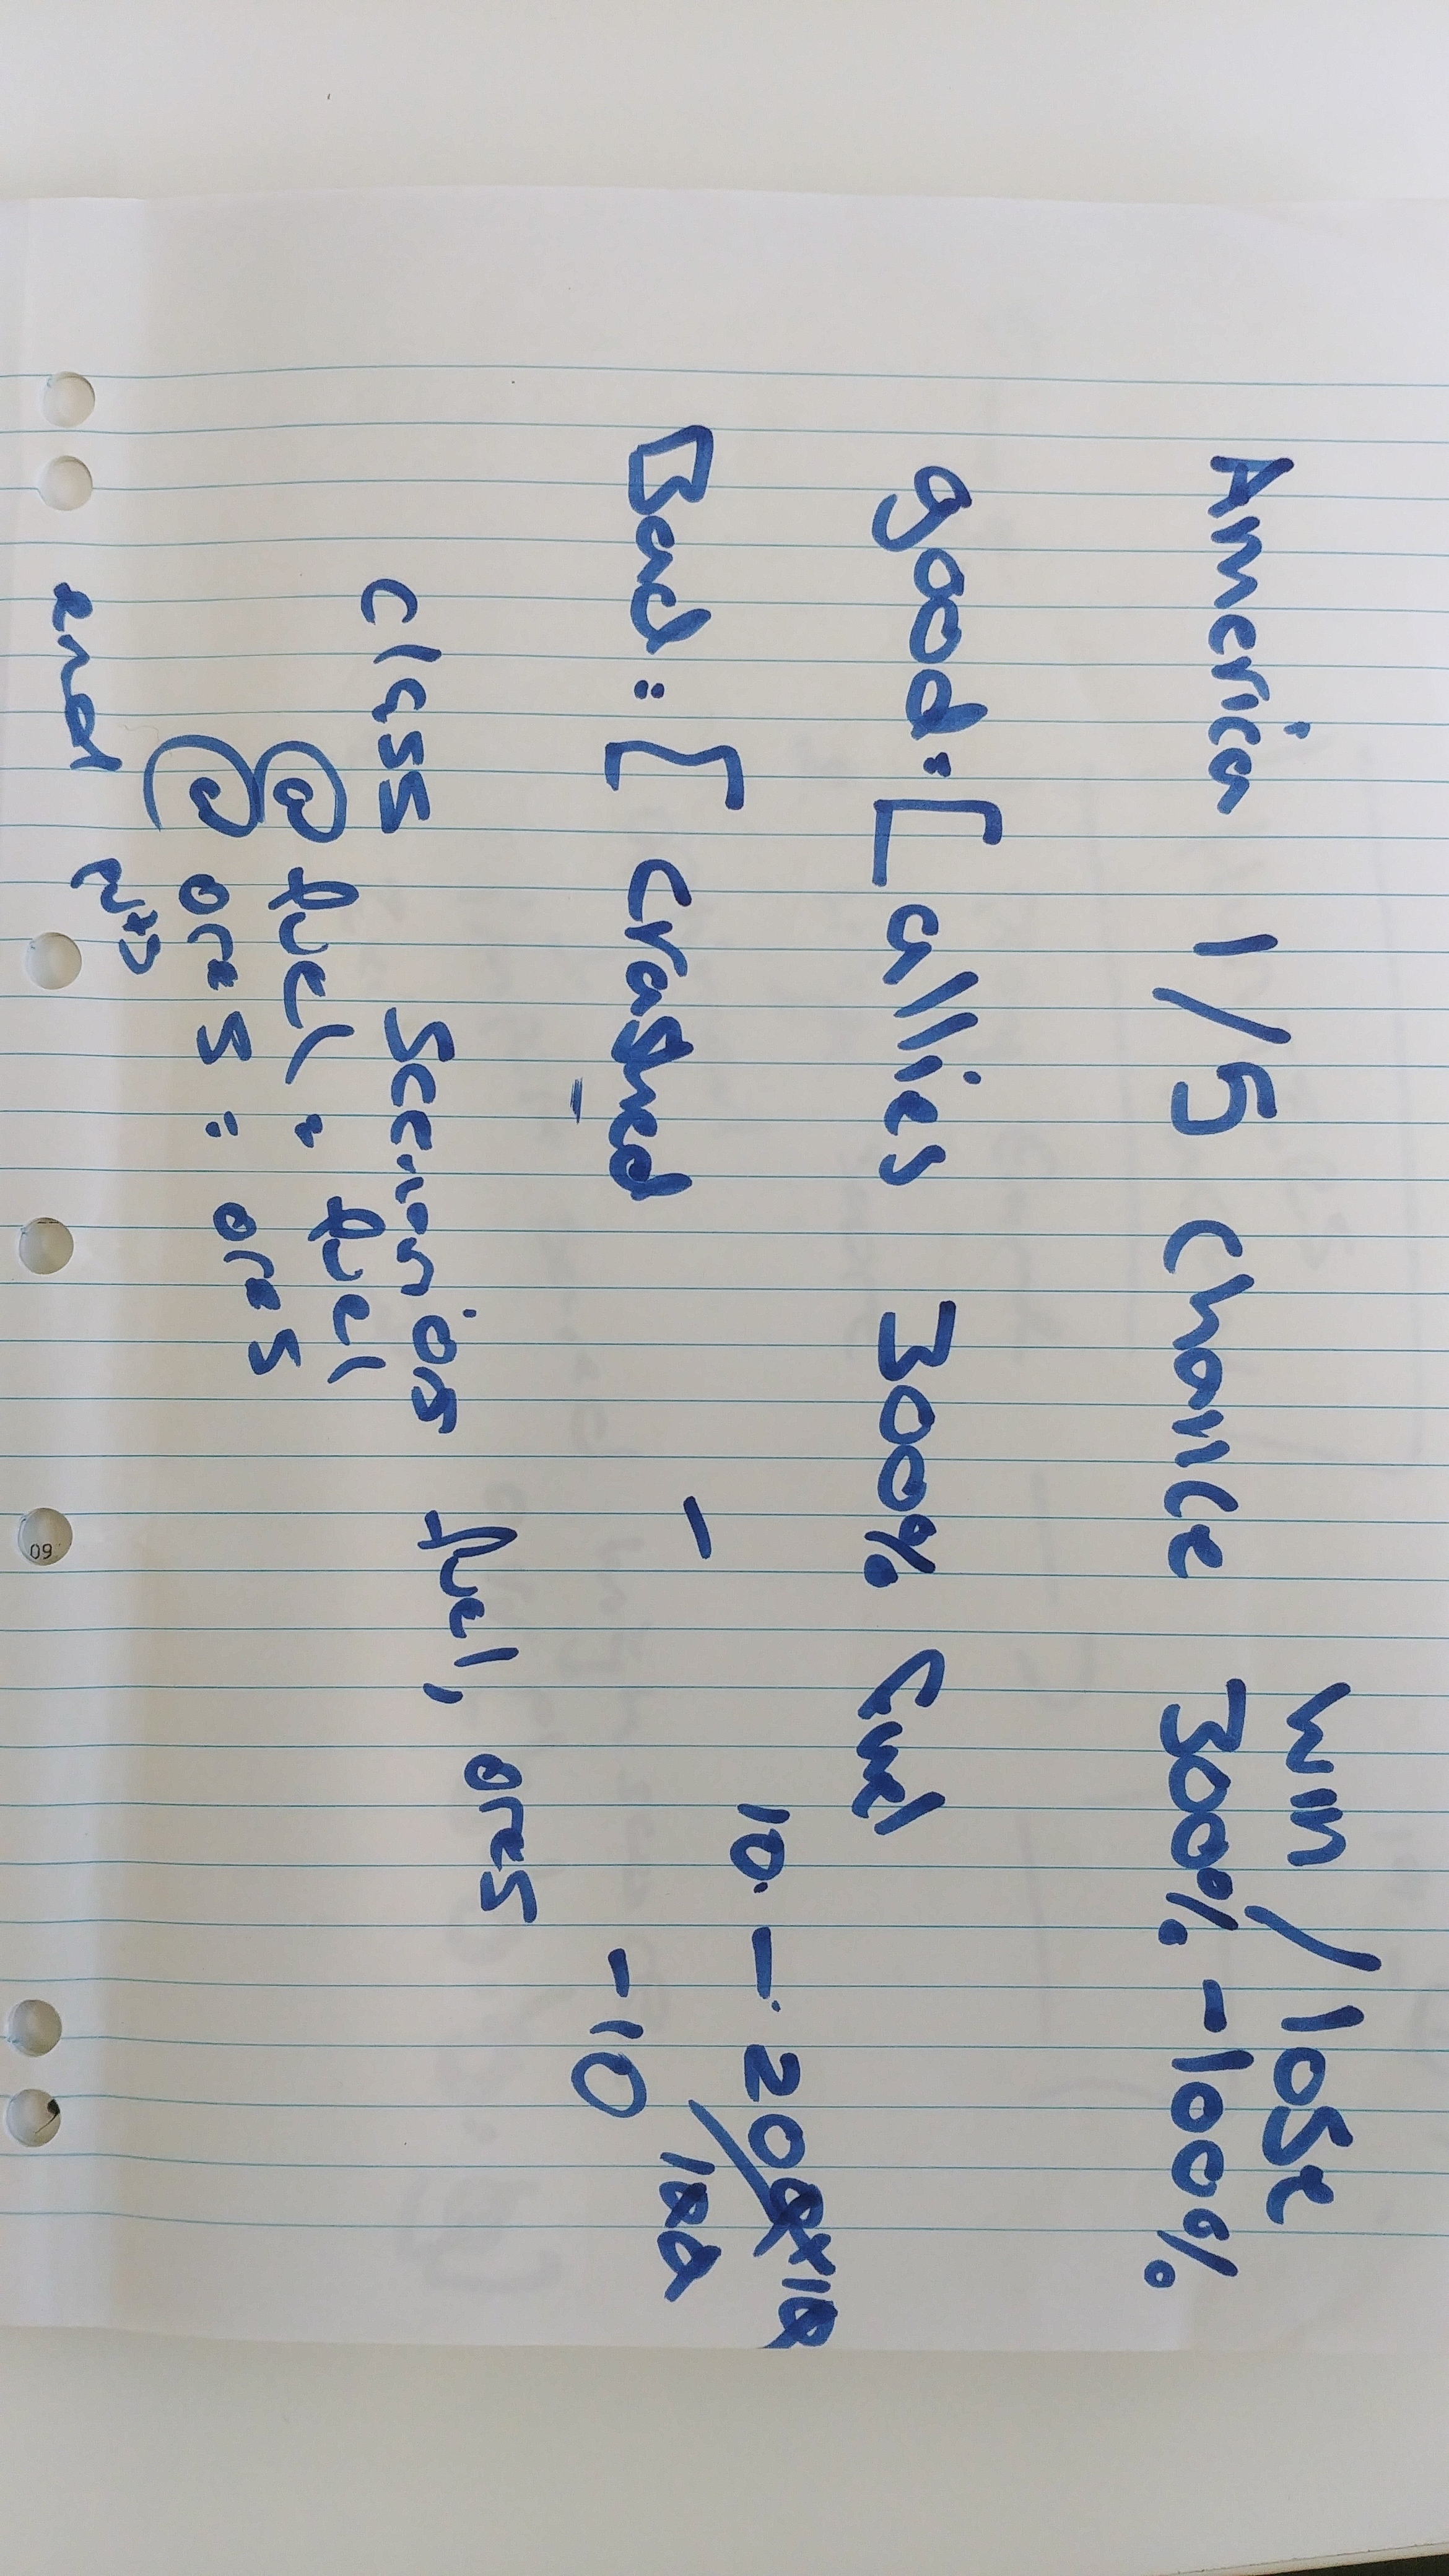 win / lose
America 1/5 Chance 300% -100%
good: [ allies 300% Cud
10. - 200
Bad: [ crashed - -10
class Scenarios fuel, ores
@ fuel: fuel
@ ores: ores
end